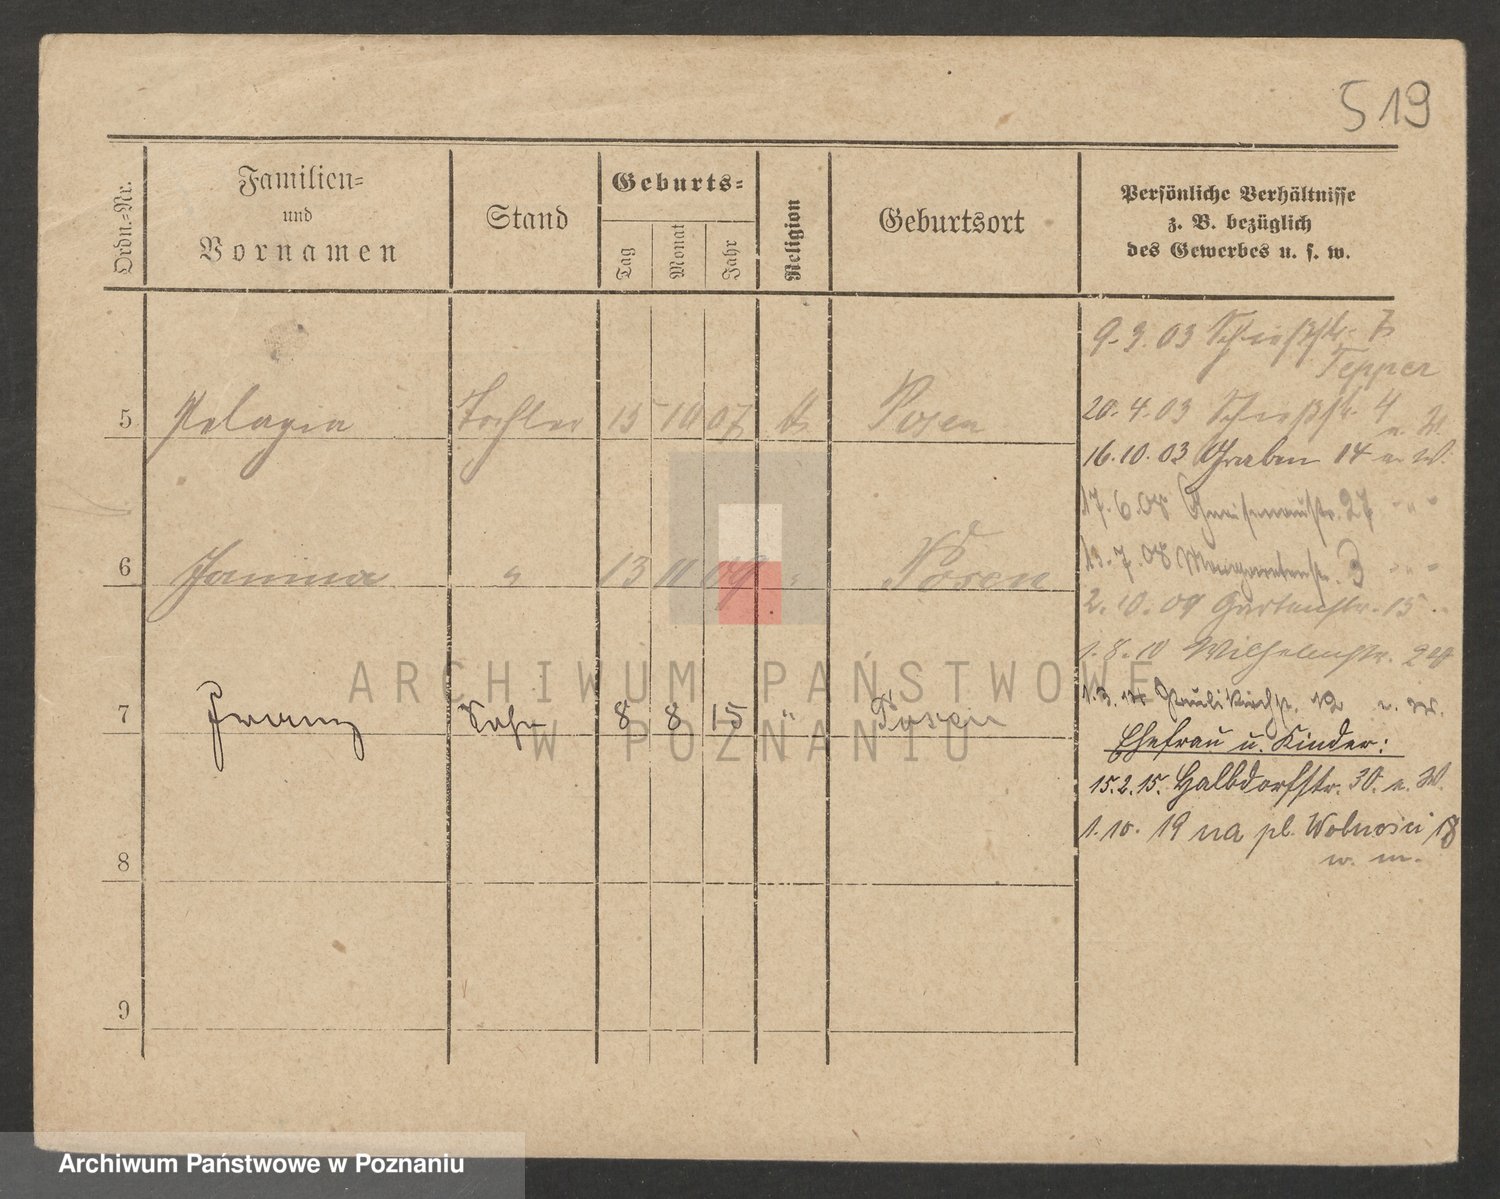 519
Ordn.=Nr.
Familien=
und
Vornamen
Stand
Geburts=
Tag
Monat
Jahr
Religion
Geburtsort
Persönliche Verhältnisse
z. B. bezüglich
des Gewerbes u. s. w.
9.3.03 Schießstr. 7
Tepper
5 Pelagia Tochter 15 10 07 k Posen
20.4.03 Schießstr. 4 u. W.
16.10.03 Graben 14 u. W.
17.6.08 Gneisenaustr. 27 " " "
6 Janina " 13 11 09 " Posen
13.7.08 Margaretenstr. 3 " " "
2.10.09 Gartenstr. 15
1.8.10 Wilhelmstr.
7 Franz Sohn 8 8 15 " Posen
1.3.14 Paulikirchstr. 12 u. W.
Ehefrau u. Kinder:
15.2.15. Halbdorfstr. 30. u. W.
1.10.19 na pl. Wolności 18
w. m.
8
9
ARCHIWUM PAŃSTWOWE
W POZNANIU
Archiwum Państwowe w Poznaniu